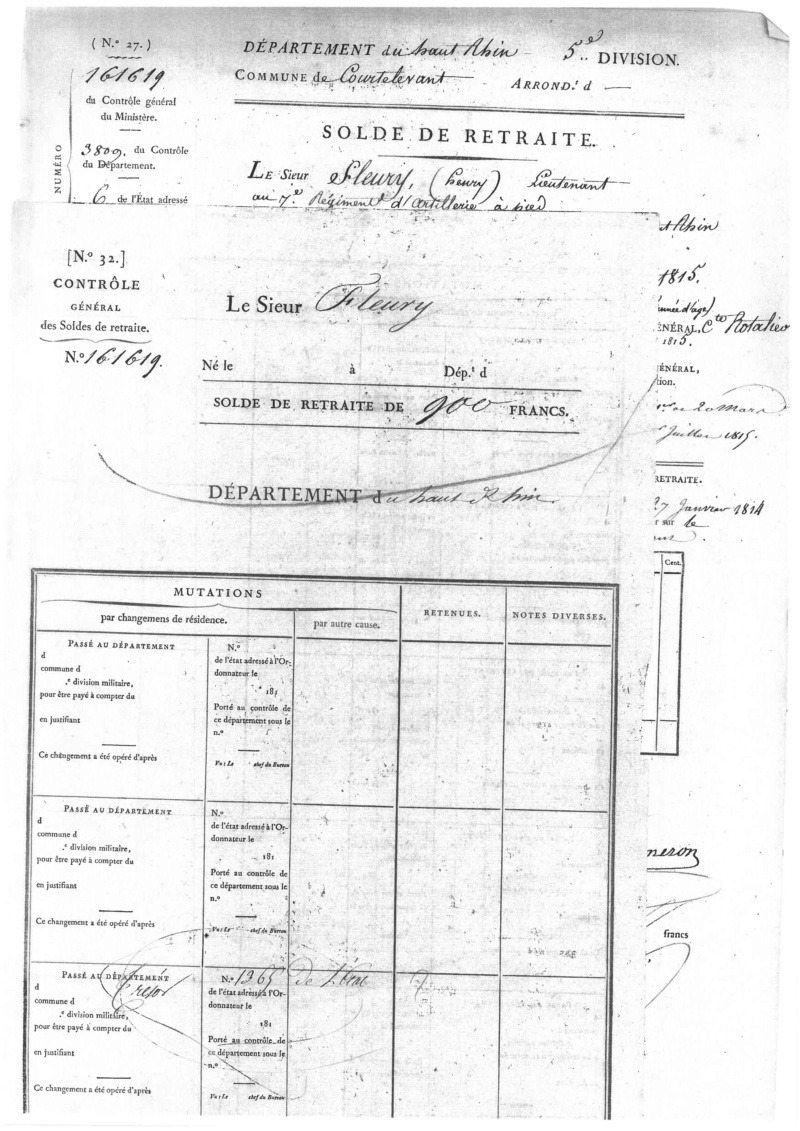 ( N.° 27. )
161619
du Contrôle général
du Ministère.
3809. du Contrôle
du Département.
NUMÉRO
6 de l'État adressé
DÉPARTEMENT du haut Rhin 5e DIVISION.
COMMUNE de Courtelevant ARROND.t d —
SOLDE DE RETRAITE.
LE Sieur Fleury, (henry) Lieutenant
au 7.e Régiment d'artillerie à pied
[N.° 32.]
CONTRÔLE
GÉNÉRAL
des Soldes de retraite.
N.° 161619.
Le Sieur Fleury
Né le à Dép.t d
SOLDE DE RETRAITE DE 900 FRANCS.
DÉPARTEMENT du haut Rhin
t Rhin
1815.
année d'age)
ÉNÉRAL, Cte Rotalier
1815.
ÉNÉRAL,
tion.
de 20 Mars
Juillet 1815.
RETRAITE.
27 Janvier 1814
r sur le
Cent.
MUTATIONS
par changemens de résidence.
par autre cause.
RETENUES.
NOTES DIVERSES.
PASSÉ AU DÉPARTEMENT
d
commune d
.e division militaire,
pour être payé à compter du
en justifiant
Ce changement a été opéré d'après
N.°
de l'état adressé à l'Or-
donnateur le
181
Porté au contrôle de
ce département sous le
n.°
Vu : Le chef du Bureau
PASSÉ AU DÉPARTEMENT
d
commune d
.e division militaire,
pour être payé à compter du
en justifiant
Ce changement a été opéré d'après
N.°
de l'état adressé à l'Or-
donnateur le
181
Porté au contrôle de
ce département sous le
n.°
Vu : Le chef du Bureau
neron
francs
PASSÉ AU DÉPARTEMENT
d Trésor
commune d
.e division militaire,
pour être payé à compter du
en justifiant
Ce changement a été opéré d'après
N.° 1365 de l'état
de l'état adressé à l'Or-
donnateur le
181
Porté au contrôle de
ce département sous le
n.°
Vu : Le chef du Bureau